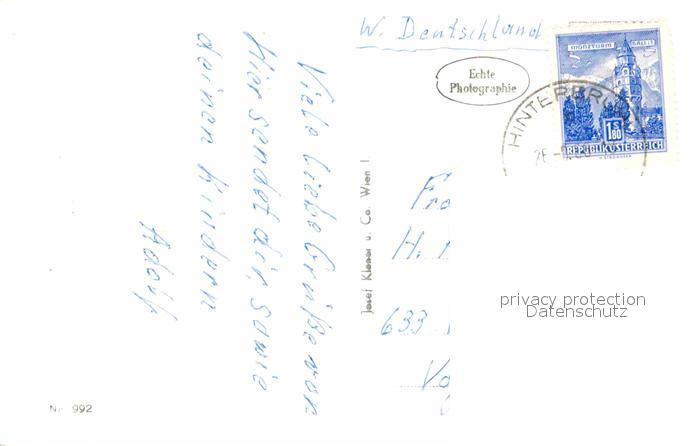 W. Deutschland
Echte
Photographie
MÜNZTURM HALL i.T.
S 1.80
REPUBLIK ÖSTERREICH
HINTERBRÜ
Viele liebe Grüße von
hier sendet dir, sowie
deinen Kindern
Adolf
Josef Klener u. Co. Wien I
Fra
H.
633
Vo
privacy protection
Datenschutz
Nr. 992